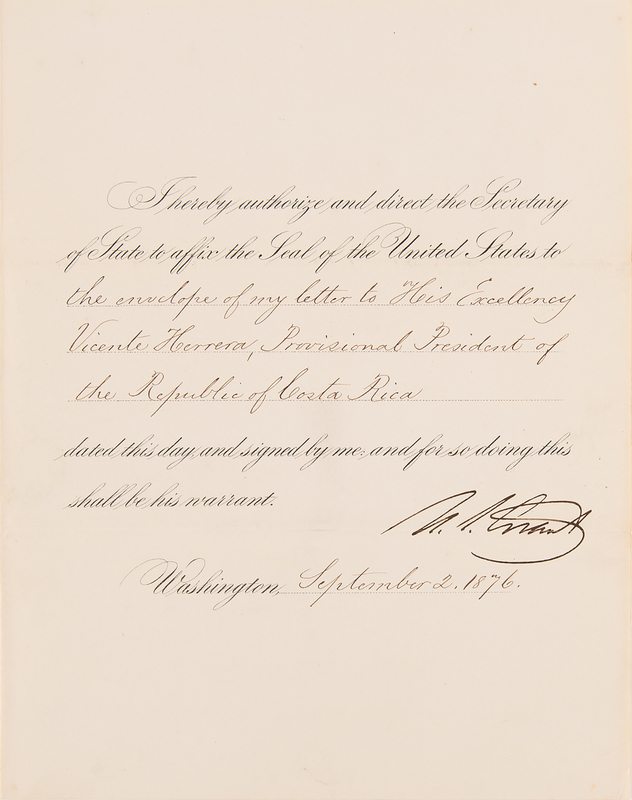 I hereby authorize and direct the Secretary
of State to affix the Seal of the United States to
the envelope of my letter to His Excellency
Vicente Herrera, Provisional President of
the Republic of Costa Rica
dated this day, and signed by me: and for so doing this
shall be his warrant.
U. S. Grant
Washington, September 2. 1876.